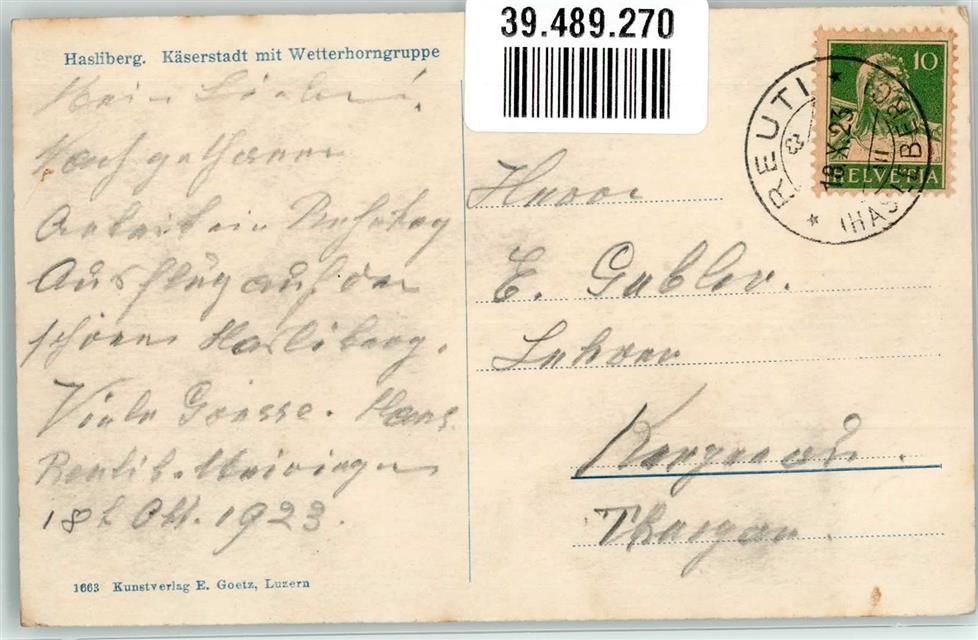 39.489.270
Hasliberg. Käserstadt mit Wetterhorngruppe
Mein Lieber!
Nach gethaner
Arbeit ein Ruhetag
Ausflug auf den
schönen Hasliberg.
Viele Grüsse. Hans
Reutib. Meiringen
18t Okt. 1923.
1663 Kunstverlag E. Goetz, Luzern
10
HELVETIA
REUTI
18.X.23
(HASLIBERG)
Herrn
E. Gubler.
Lehrer
Thurgau.